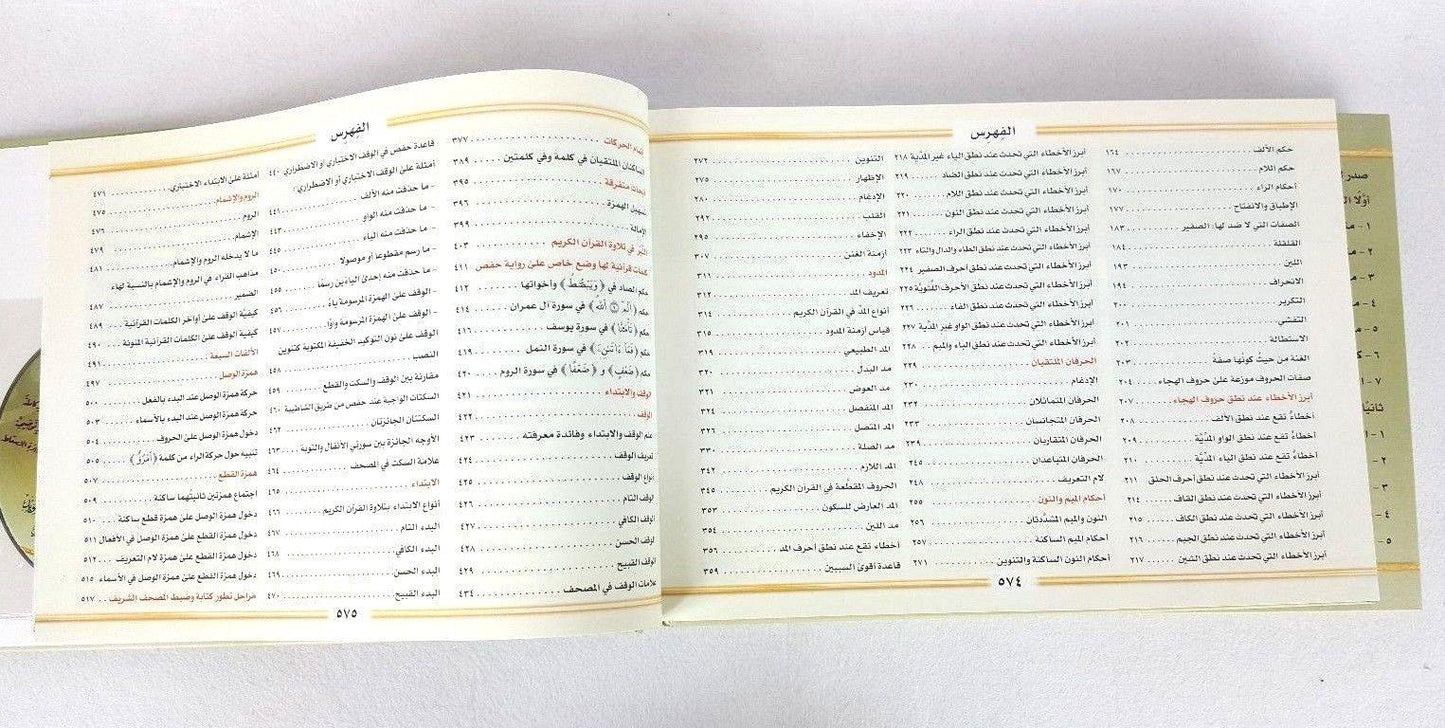 الفهرس
حكم الألف ١٦٤
حكم اللام ١٦٧
أحكام الراء ١٧٠
الإطباق والانفتاح ١٧٧
الصفات التي لا ضد لها: الصفير ١٨٣
القلقلة ١٨٤
اللين ١٩٣
الانحراف ١٩٤
التكرير ٢٠٠
التفشي ٢٠١
الاستطالة ٢٠٢
الغنة من حيث كونها صفة ٢٠٣
صفات الحروف موزعة على حروف الهجاء ٢٠٤
أبرز الأخطاء عند نطق حروف الهجاء ٢٠٧
أخطاءٌ تقع عند نطق الألف ٢٠٨
أخطاءٌ تقع عند نطق الواو المدّيّة ٢٠٩
أخطاءٌ تقع عند نطق الياء المدّيّة ٢١٠
أبرز الأخطاء التي تحدث عند نطق أحرف الحلق ٢١١
أبرز الأخطاء التي تحدث عند نطق القاف ٢١٤
أبرز الأخطاء التي تحدث عند نطق الكاف ٢١٥
أبرز الأخطاء التي تحدث عند نطق الجيم ٢١٦
أبرز الأخطاء التي تحدث عند نطق الشين ٢١٧
أبرز الأخطاء التي تحدث عند نطق الياء غير المدّية ٢١٨
أبرز الأخطاء التي تحدث عند نطق الضاد ٢١٩
أبرز الأخطاء التي تحدث عند نطق اللام ٢٢٠
أبرز الأخطاء التي تحدث عند نطق النون ٢٢١
أبرز الأخطاء التي تحدث عند نطق الراء ٢٢٢
أبرز الأخطاء التي تحدث عند نطق الطاء والدال والتاء ٢٢٣
أبرز الأخطاء التي تحدث عند نطق أحرف الصفير ٢٢٤
أبرز الأخطاء التي تحدث عند نطق الأحرف اللِّثويّة ٢٢٥
أبرز الأخطاء التي تحدث عند نطق الفاء ٢٢٦
أبرز الأخطاء التي تحدث عند نطق الواو غير المدّية ٢٢٧
أبرز الأخطاء التي تحدث عند نطق الباء والميم ٢٢٨
الحرفان الملتقيان ٢٢٩
الإدغام ٢٣٠
الحرفان المتماثلان ٢٣٢
الحرفان المتجانسان ٢٣٣
الحرفان المتقاربان ٢٣٩
الحرفان المتباعدان ٢٤٥
لام التعريف ٢٤٨
أحكام الميم والنون ٢٥٥
النون والميم المشدَّدتان ٢٥٦
أحكام الميم الساكنة ٢٥٧
أحكام النون الساكنة والتنوين ٢٧١
التنوين ٢٧٢
الإظهار ٢٧٥
الإدغام ٢٨٠
القلب ٢٩٢
الإخفاء ٢٩٥
أزمنة الغنن ٣٠٧
المدود ٣١١
تعريف المد ٣١٢
أنواع المد في القرآن الكريم ٣١٤
قياس أزمنة المدود ٣١٥
المد الطبيعي ٣١٩
مد البدل ٣٢٠
مد العوض ٣٢١
المد المنفصل ٣٢٤
المد المتصل ٣٢٦
مد الصلة ٣٣٠
المد اللازم ٣٤٢
الحروف المقطعة في القرآن الكريم ٣٤٥
المد العارض للسكون ٣٥٣
مد اللين ٣٥٤
أخطاء تقع عند نطق أحرف المد ٣٥٦
قاعدة أقوى السببين ٣٥٩
٥٧٤
الفهرس
الحركات ٣٧٧
الساكنان الملتقيان في كلمة وفي كلمتين ٣٨٩
متفرقة ٣٩٥
تسهيل الهمزة ٣٩٦
الإمالة ٣٩٩
في تلاوة القرآن الكريم ٤٠٣
كلمات قرآنية لها وضع خاص على رواية حفص ٤١١
حكم الصاد في ﴿وَيَبْصُۜطُ﴾ وأخواتها ٤١٢
حكم ﴿الٓمٓ ۝ ٱللَّهُ﴾ في سورة آل عمران ٤١٤
حكم ﴿تَأْمَ۫نَّا﴾ في سورة يوسف ٤١٦
حكم ﴿فَمَآ ءَاتَىٰنِۦَ﴾ في سورة النمل ٤١٩
حكم ﴿ضَعْفٍ﴾ و ﴿ضَعْفًا﴾ في سورة الروم ٤٢٠
الوقف والابتداء ٤٢١
الوقف ٤٢٢
علم الوقف والابتداء وفائدة معرفته ٤٢٣
تعريف الوقف ٤٢٤
أنواع الوقف ٤٢٥
الوقف التام ٤٢٦
الوقف الكافي ٤٢٧
الوقف الحسن ٤٢٨
الوقف القبيح ٤٢٩
علامات الوقف في المصحف ٤٣٤
قاعدة حفص في الوقف الاختباري أو الاضطراري ٤٤٠
أمثلة على الوقف الاختباري أو الاضطراري:
- ما حذفت منه الألف ٤٤١
- ما حذفت منه الواو ٤٤٣
- ما حذفت منه الياء ٤٤٥
- ما رسم مقطوعا أو موصولا ٤٥٠
- ما حذفت منه إحدى الياءين رسمًا ٤٥٥
- الوقف على الهمزة المرسومة ياءً ٤٥٦
- الوقف على الهمزة المرسومة واوًا ٤٥٧
الوقف على نون التوكيد الخفيفة المكتوبة كتنوين
النصب ٤٥٨
مقارنة بين الوقف والسكت والقطع ٤٥٩
السكتات الواجبة عند حفص من طريق الشاطبية ٤٦٠
السكتتان الجائزتان ٤٦٢
الأوجه الجائزة بين سورتي الأنفال والتوبة ٤٦٣
علامة السكت في المصحف ٤٦٤
الابتداء ٤٦٥
أنواع الابتداء بتلاوة القرآن الكريم ٤٦٦
البدء التام ٤٦٧
البدء الكافي ٤٦٨
البدء الحسن ٤٦٩
البدء القبيح ٤٧٠
أمثلة على الابتداء الاختباري ٤٧١
الروم والإشمام ٤٧٥
الروم ٤٧٦
الإشمام ٤٧٩
ما لا يدخله الروم والإشمام ٤٨١
مذاهب القراء في الروم والإشمام بالنسبة لهاء
الضمير ٤٨٧
كيفية الوقف على أواخر الكلمات القرآنية ٤٨٩
كيفية الوقف على الكلمات القرآنية المنونة ٤٩٠
الألفات السبعة ٤٩١
همزة الوصل ٤٩٧
حركة همزة الوصل عند البدء بالفعل ٥٠٠
حركة همزة الوصل عند البدء بالأسماء ٥٠٣
دخول همزة الوصل على الحروف ٥٠٤
تنبيه حول حركة الراء من كلمة ﴿ٱمْرُؤٌا۟﴾ ٥٠٥
همزة القطع ٥٠٧
اجتماع همزتين ثانيتهما ساكنة ٥٠٩
دخول همزة الوصل على همزة قطع ساكنة ٥١٠
دخول همزة القطع على همزة الوصل في الأفعال ٥١١
دخول همزة القطع على همزة لام التعريف ٥١٢
دخول همزة القطع على همزة الوصل في الأسماء ٥١٥
مراحل تطور كتابة وضبط المصحف الشريف ٥١٧
٥٧٥